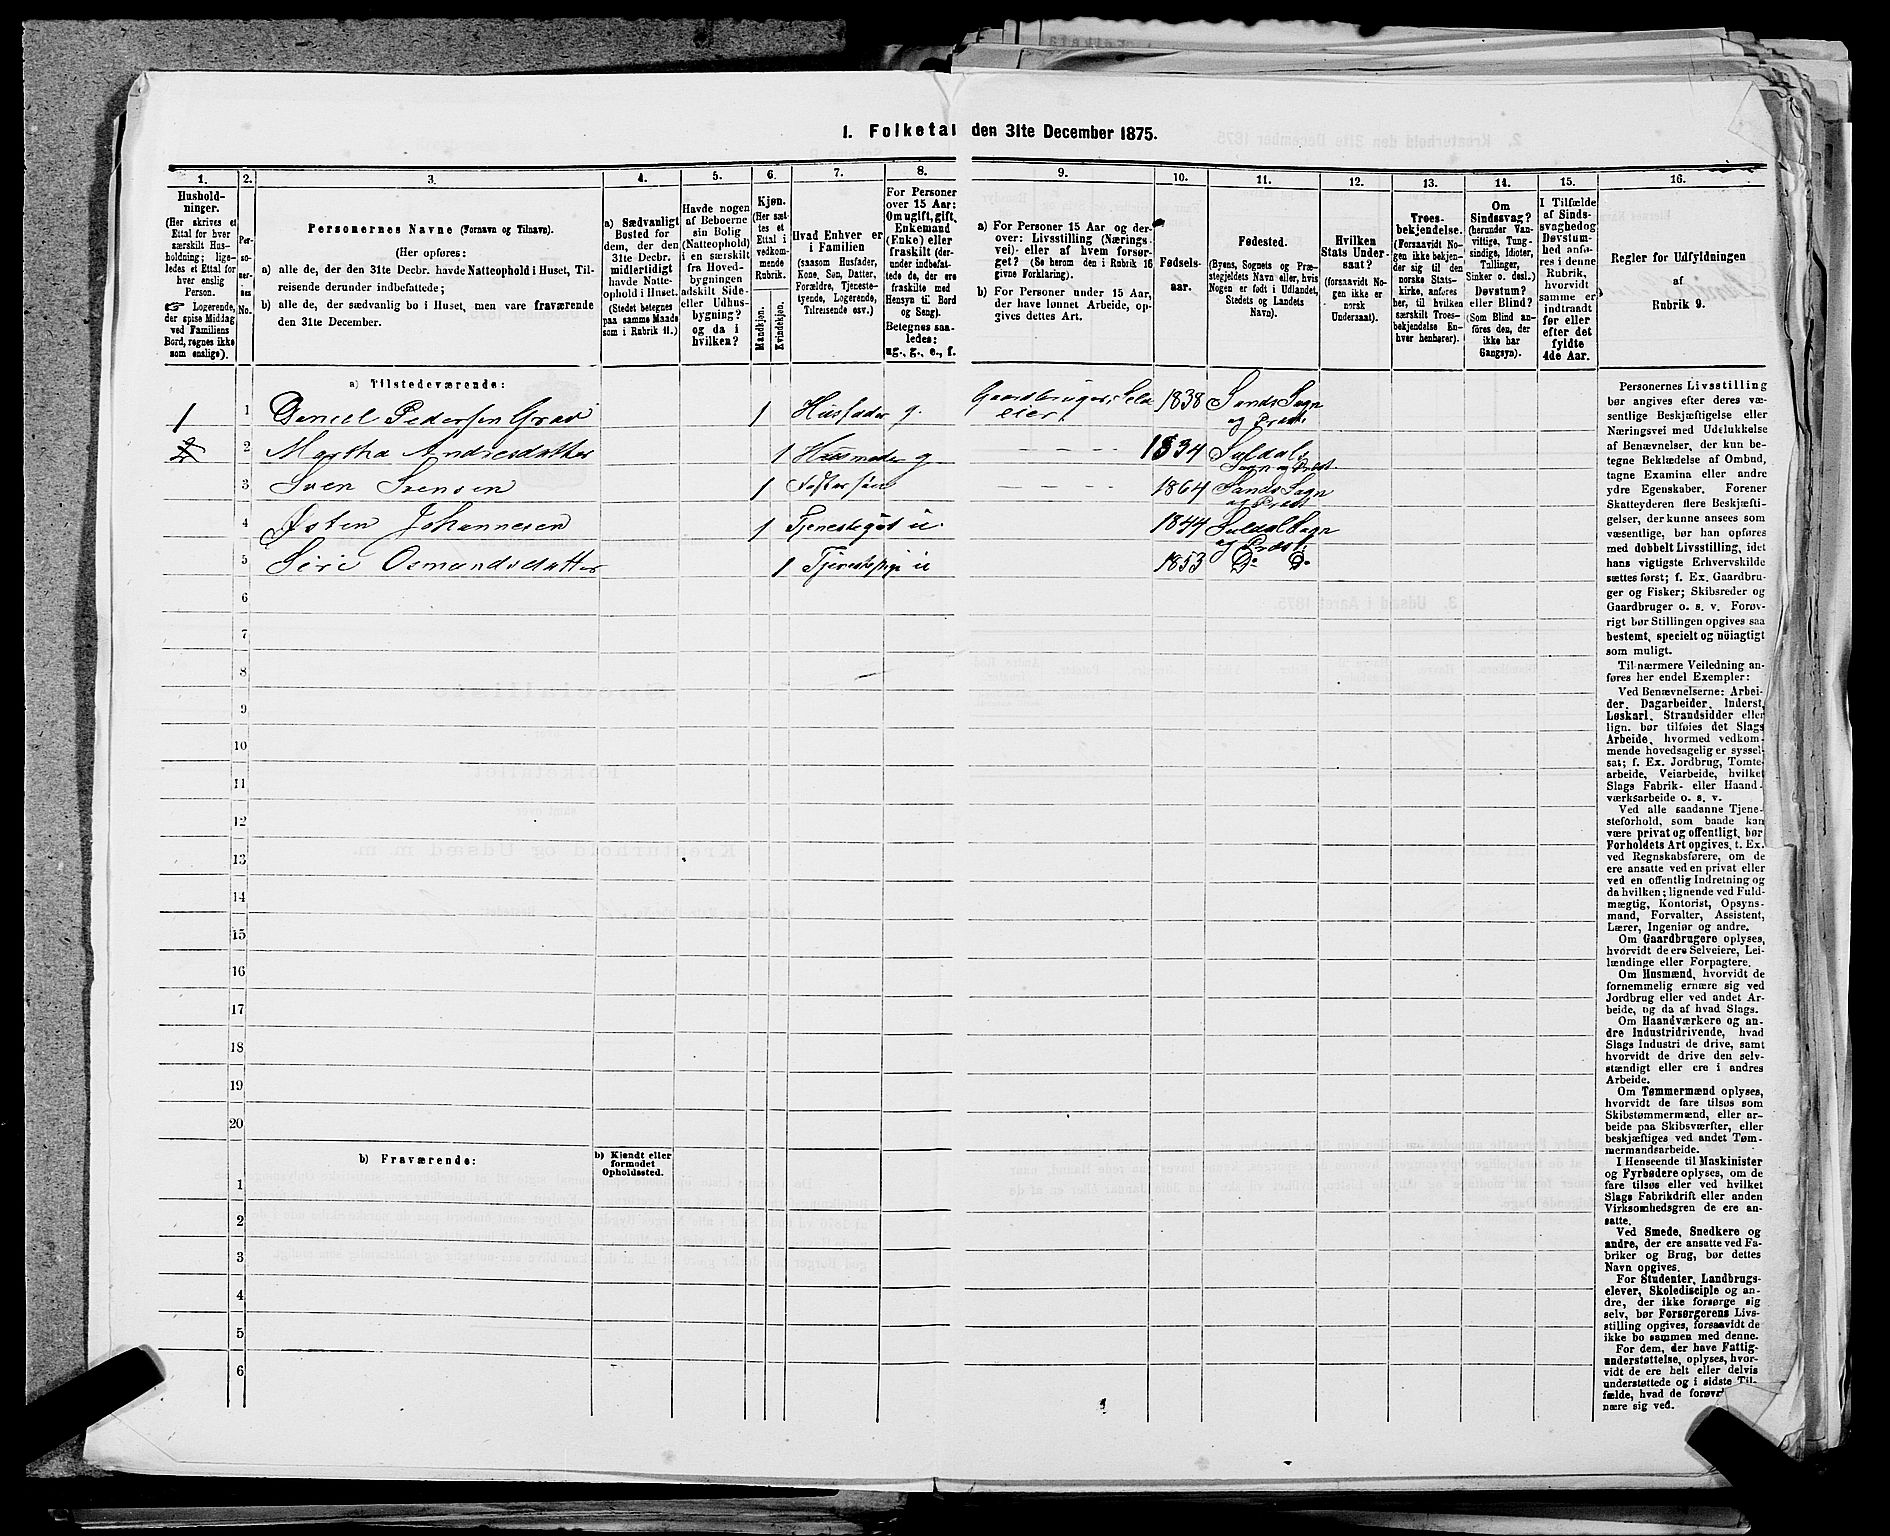 1. Folketal den 31te December 1875.
1. 2. 3. 4. 5. 6. 7. 8. 9. 10. 11. 12. 13. 14. 15. 16.
Hushold-
ninger.
(Her skrives et
Ettal for hver
særskilt Hus-
holdning; lige-
ledes et Ettal for
hver enslig
Person.
☞ Logerende,
der spise Middag
ved Familiens
Bord, regnes ikke
som enslige).
Per-
so-
ner-
nes
No.
Personernes Navne (Fornavn og Tilnavn).
(Her opføres:
a) alle de, der den 31te Decbr. havde Natteophold i Huset, Til-
reisende derunder indbefattede;
b) alle de, der sædvanlig bo i Huset, men vare fraværende
den 31te December.
a) Sædvanligt
Bosted for
dem, der den
31te Decbr.
midlertidigt
havde Natte-
ophold i Huset.
(Stedet betegnes
paa samme Maade
som i Rubrik 11.)
Havde nogen
af Beboerne
sin Bolig
(Natteophold)
i en særskilt
fra Hoved-
bygningen
adskilt Side-
eller Udhus-
bygning?
og da i
hvilken?
Kjøn.
(Her sæt-
tes et
Ettal i
vedkom-
mende
Rubrik.
Mandkjøn.
Kvindekjøn.
Hvad Enhver er
i Familien
(saasom Husfader,
Kone, Søn, Datter,
Forældre, Tjeneste-
tyende, Logerende,
Tilreisende osv.)
For Personer
over 15 Aar:
Om ugift, gift,
Enkemand
(Enke) eller
fraskilt (der-
under indbefat-
tede de, der ere
fraskilte med
Hensyn til Bord
og Seng).
Betegnes saa-
ledes:
ug., g., e., f.
a) For Personer 15 Aar og der-
over: Livsstilling (Nærings-
vei)- eller af hvem forsør-
get? (Se herom den i Rubrik 16
givne Forklaring).
b) For Personer under 15 Aar,
der have lønnet Arbeide, op-
gives dettes Art.
Fødsels-
aar.
Fødested.
(Byens, Sognets og Præ-
stegjeldets Navn eller, hvis
Nogen er født i Udlandet,
Stedets og Landets
Navn).
Hvilken
Stats Under-
saat?
(forsaavidt No-
gen ikke er
norsk
Undersaat).
Troes-
bekjendelse.
(Forsaavidt No-
gen ikke bekjen-
der sig til den
norske Stats-
kirke, anføres
her, til hvilken
særskilt Troes-
bekjendelse En-
hver henhører).
Om
Sindssvag?
(herunder Van-
vittige, Tung-
sindige, Idioter,
Tullinger,
Sinker o. desl.)
Døvstum?
eller Blind?
(Som Blind an-
føres den, der
ikke har
Gangsyn).
I Tilfælde
af Sinds-
svaghed og
Døvstum-
hed anfø-
res i denne
Rubrik,
hvorvidt
samme er
indtraadt
før eller
efter det
fyldte
4de Aar.
Regler for Udfyldningen
af
Rubrik 9.
a) Tilstedeværende:
1 1 Daniel Pedersen Grav 1 Husfader g. Gaardbruger, Selv
eier 1838 Sands Sogn
og Præst.
2 2 Martha Andresdatter 1 Husmoder g - - - 1834 Suldals
Sogn og Præst.
3 Sven Svensen 1 Fostersøn - - - 1864 Sands Sogn
og Præst
4 Østen Johannesen 1 Tjenestegut u. 1844 Suldal Sogn
og Præst.
5 Siri Osmundsdatter 1 Tjenestepige u 1853 Do Do
6
7
8
9
10
11
12
13
14
15
16
17
18
19
20
b) Fraværende:
b) Kjendt eller
formodet
Opholdssted.
1
2
3
4
5
6
Personernes Livsstilling
bør angives efter deres væ-
sentlige Beskjæftigelse eller
Næringsvei med Udelukkelse
af Benævnelser, der kun be-
tegne Beklædelse af Ombud,
tagne Examina eller andre
ydre Egenskaber. Forener
Skatteyderen flere Beskjæfti-
gelser, der kunne ansees som
væsentlige, bør han opføres
med dobbelt Livsstilling, idet
hans vigtigste Erhvervskilde
sættes først; f. Ex. Gaardbru-
ger og Fisker; Skibsreder og
Gaardbruger o. s. v. Forøv-
rigt bør Stillingen opgives saa
bestemt, specielt og nöiagtigt
som muligt.
Til nærmere Veiledning an-
føres her endel Exempler:
Ved Benævnelserne: Arbei-
der, Dagarbeider, Inderst,
Løskarl, Strandsidder eller
lign. bør tilføies det Slags
Arbeide, hvormed vedkom-
mende hovedsagelig er syssel-
sat; f. Ex. Jordbrug, Tomte-
arbeide, Veiarbeide, hvilket
Slags Fabrik- eller Haand-
værksarbeide o. s. v.
Ved alle saadanne Tjene-
steforhold, som baade kan
være privat og offentligt, bør
Forholdets Art opgives, t. Ex.
ved Regnskabsførere, om de
ere ansatte ved en privat eller
ved en offentlig Indretning og
da hvilken; lignende ved Fuld-
mægtig, Kontorist, Opsyns-
mand, Forvalter, Assistent,
Lærer, Ingeniør og andre.
Om Gaardbrugere oplyses,
hvorvidt de ere Selveiere, Lei-
lændinge eller Forpagtere.
Om Husmænd, hvorvidt de
fornemmelig ernære sig ved
Jordbrug eller ved andet Ar-
beide, og da af hvad Slags.
Om Haandværkere og an-
dre Industridrivende, hvad
Slags Industri de drive, samt
hvorvidt de drive den selv-
stændigt eller ere i andres
Arbeide.
Om Tømmermænd oplyses,
hvorvidt de fare tilsøs som
Skibstømmermænd, eller ar-
beide paa Skibsværfter, eller
beskjæftiges ved andet Tøm-
mermandsarbeide.
I Henseende til Maskinister
og Fyrbødere oplyses, om de
fare tilsøs eller ved hvilket
Slags Fabrikdrift eller anden
Virksomhedsgren de ere an-
satte.
Ved Smede, Snedkere og
andre, der ere ansatte ved Fa-
briker og Brug, bør dettes
Navn opgives.
For Studenter, Landbrugs-
elever, Skoledisciple og an-
dre, der ikke forsørge sig
selv, bør Forsørgerens Livs-
stilling opgives, forsaavidt de
ikke bo sammen med denne.
For dem, der have Fattig-
understøttelse, oplyses, hvor-
vidt de ere helt eller delvis
understøttede og i sidste Til-
fælde, hvad de forøvr
nære sig ved.